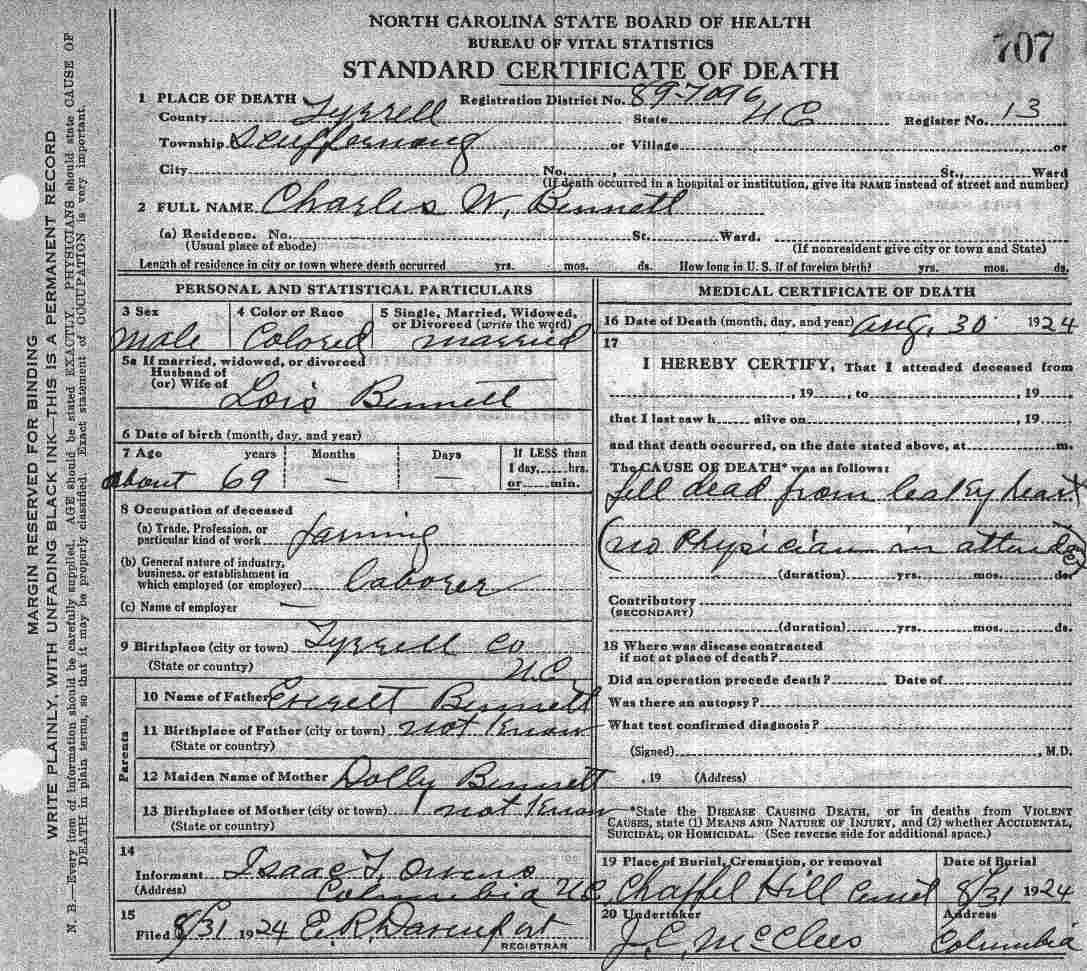 NORTH CAROLINA STATE BOARD OF HEALTH
BUREAU OF VITAL STATISTICS
STANDARD CERTIFICATE OF DEATH
707
1 PLACE OF DEATH Registration District No. 89-7096
County Tyrrell State N C Register No. 13
Township Scuffernong or Village or
City No. , St., Ward
(If death occurred in a hospital or institution, give its NAME instead of street and number)
2 FULL NAME Charles W. Bennett
(a) Residence. No. St. Ward.
(Usual place of abode) (If nonresident give city or town and State)
Length of residence in city or town where death occurred yrs. mos. ds. How long in U. S. if of foreign birth? yrs. mos. ds.
PERSONAL AND STATISTICAL PARTICULARS
3 Sex 4 Color or Race 5 Single, Married, Widowed, or Divorced (write the word)
male Colored married
5a If married, widowed, or divorced
Husband of
(or) Wife of Lois Bennett
6 Date of birth (month, day, and year)
7 Age years Months Days If LESS than
1 day, hrs.
or min.
about 69 — —
8 Occupation of deceased
(a) Trade, Profession, or
particular kind of work farming
(b) General nature of industry,
business, or establishment in
which employed (or employer) laborer
(c) Name of employer —
9 Birthplace (city or town) Tyrrell Co
(State or country) N.C.
Parents
10 Name of Father Everett Bennett
11 Birthplace of Father (city or town) not Know
(State or country)
12 Maiden Name of Mother Dolly Bennett
13 Birthplace of Mother (city or town) not Know
(State or country)
14
Informant Isaac T. Owens
(Address) Columbia N.C.
15
Filed 8/31 1924 E. R. Davenport
REGISTRAR
MEDICAL CERTIFICATE OF DEATH
16 Date of Death (month, day, and year) Aug. 30 1924
17
I HEREBY CERTIFY, That I attended deceased from
, 19 , to , 19 .
that I last saw h alive on , 19 .
and that death occurred, on the date stated above, at m.
The CAUSE OF DEATH* was as follows:
fell dead from leaky heart
(no Physician in attendce)
(duration) yrs. mos. ds.
Contributory
(SECONDARY)
(duration) yrs. mos. ds.
18 Where was disease contracted
if not at place of death?
Did an operation precede death? Date of
Was there an autopsy?
What test confirmed diagnosis?
(Signed) , M.D.
, 19 (Address)
*State the DISEASE CAUSING DEATH, or in deaths from VIOLENT
CAUSES, state (1) MEANS AND NATURE OF INJURY, and (2) whether ACCIDENTAL,
SUICIDAL, OR HOMICIDAL. (See reverse side for additional space.)
19 Place of Burial, Cremation, or removal Date of Burial
Chappel Hill Cemet 8/31 1924
20 Undertaker Address
J. C. McClees Columbia
MARGIN RESERVED FOR BINDING
WRITE PLAINLY, WITH UNFADING BLACK INK—THIS IS A PERMANENT RECORD
N. B.—Every item of information should be carefully supplied. AGE should be stated EXACTLY. PHYSICIANS should state CAUSE OF
DEATH in plain terms, so that it may be properly classified. Exact statement of OCCUPATION is very important.